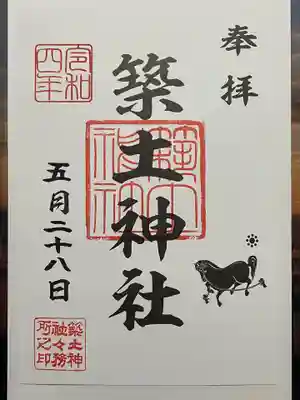 奉拝
築土神社
令和
四年
五月二十八日
築土神
社々務
所之印